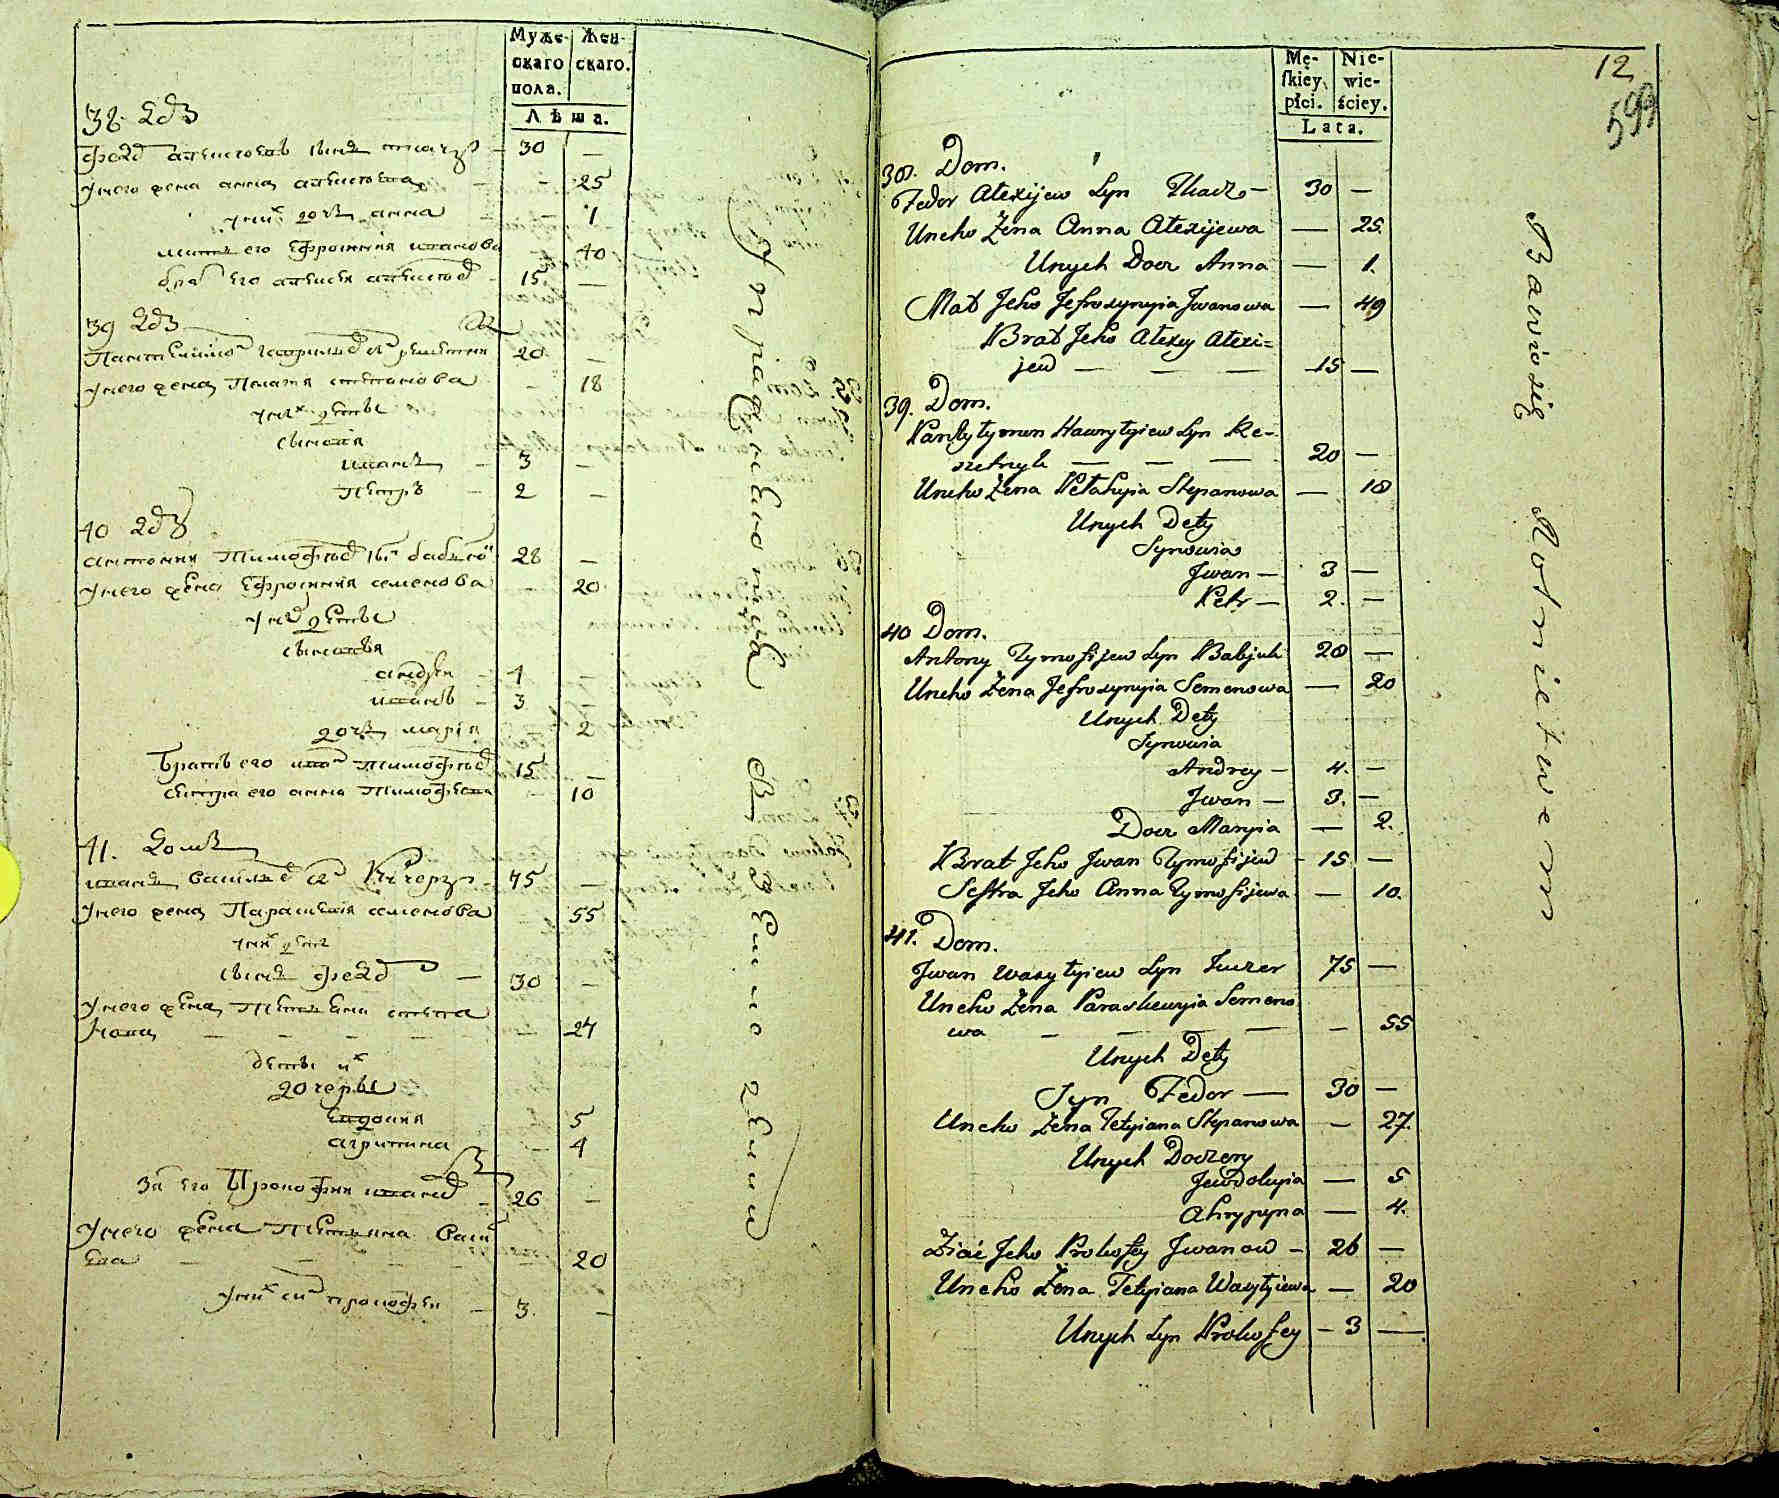 Муже-
скаго
пола.
Жен-
скаго.
Лѣта.
38 двз
Федор алексеевъ сынъ ткачъ - 30 —
У него жена анна алексеева - - 25
У них дочь анна - - 1
мать его Ефросиния иванова - 40
брат его алексей алексеев - 15 —
39 двз
20 —
У него жена Пелагия степанова - 18
У них дети
сыновя
иванъ - 3 —
петръ - 2 —
40 двз
антоний Тимофеев сын бабюк 28 —
У него жена Ефросиния семенова - 20
У них дети
сыновя
андрей - 4 —
иванъ - 3 —
дочь мария 2
братъ его иван тимофеев 15 —
сестра его анна Тимофеева - 10
41. домъ
иванъ василев сын Кучеръ - 75 —
У него жена Параскевия семенова - 55
У них дети
сынъ федор — 30 —
У него жена Петяна степа
нова — — — — — 27
дети их
дочеры
евдокия 5
агрипина - 4
Зят его Прокофий иванов - 26 —
У него жена Петяна васил
ева — — — — — 20
У них сын прокофей — 3. —
Упражняется
в земледелии
Mę-
ſkiey
płci.
Nie-
wie-
ściey.
Lata.
12
599
38. Dom.
Fedor Alexijew Syn Tkacz — 30 —
Uneho Żena Anna Alexijewa — 25.
Unych Docz Anna — 1.
Mat Jeho Jefrozynyia Jwanowa — 40
Brat Jeho Alexey Alexi=
jew — — — — 15 —
39. Dom.
Pantylymon Hawryłyiew Syn Re-
szetnyk — — — 20 —
Uneho Żena Pełahyia Stepanowa — 18
Unych Dety
Synowia
Jwan — 3 —
Petr — 2. —
40 Dom.
Antony Tymofijew Syn Babjuk 28 —
Uneho Żena Jefrozynyia Semenowa — 20
Unych Dety
Synowia
Andrey — 4. —
Jwan — 3. —
Docz Maryia — 2.
Brat Jeho Jwan Tymofijew - 15 —
Sestra Jeho Anna Tymofijewa — 10.
41. Dom.
Jwan Wasylyiew Syn Kuczer 75 —
Uneho Żena Paraskewyia Semeno
wa — — — — — 55
Unych Dety
Syn Fedor — 30 —
Uneho Żena Tetyiana Stepanowa — 27.
Unych Doczery
Jewdokyia — 5
Ahrypyna — 4.
Ziać Jeho Prokofey Jwanow — 26 —
Uneho Żena Tetyiana Wasylyiewa — 20
Unych Syn Prokofey — 3 —
Bawisię Rolnictwem